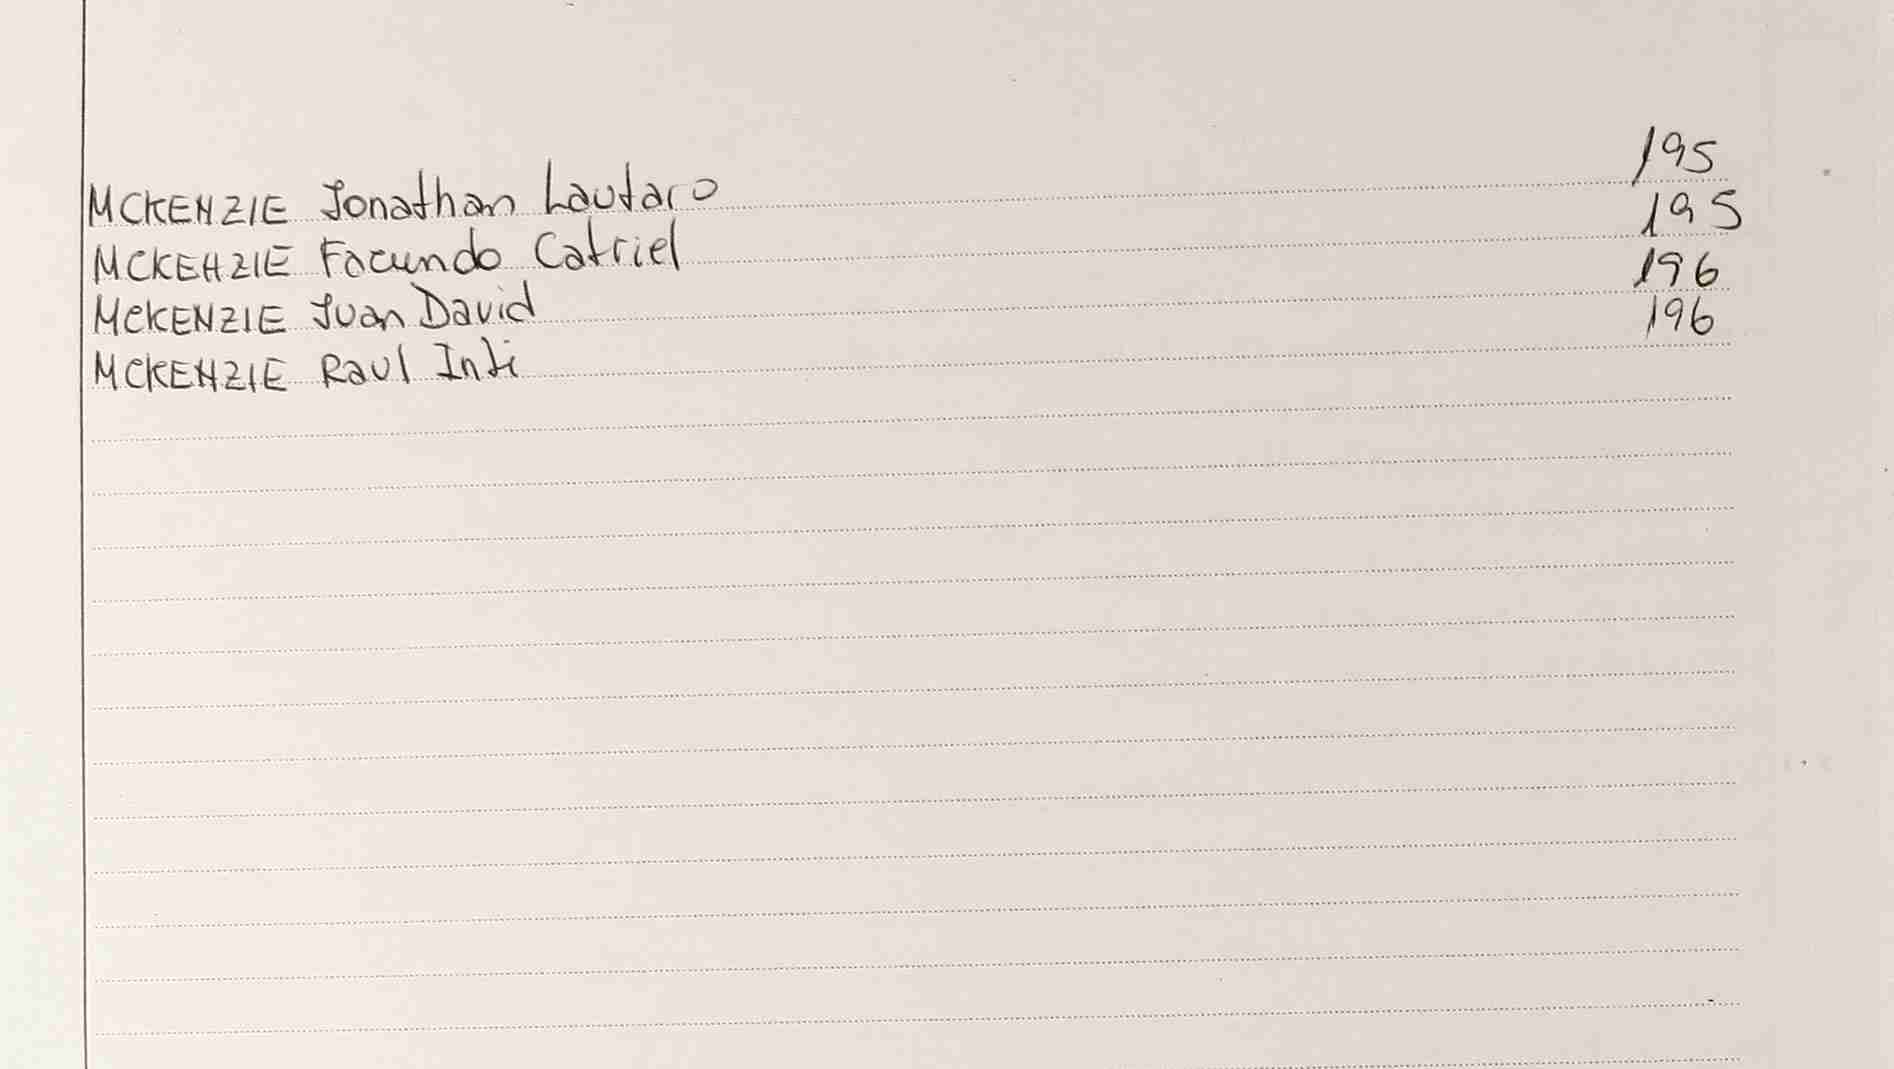 MCKENZIE Jonathan Lautaro 195
MCKENZIE Facundo Catriel 195
MCKENZIE Juan David 196
MCKENZIE Raul Inti 196